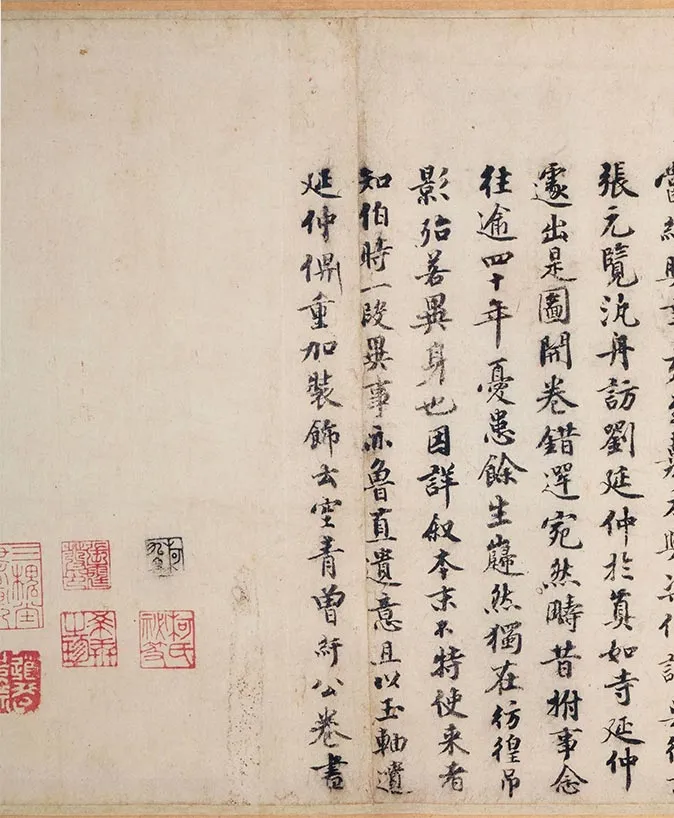 張元覽汎舟訪劉延仲於真如寺延仲
遽出是圖開卷錯遌宛然疇昔拊事念
往逾四十年憂患餘生巋然獨在彷徨吊
影殆若異身也因詳叙本末不特使来者
知伯時一段異事亦魯直遺意且以玉軸遺
延仲俾重加裝飾云空青曾紆公卷書
柯氏
三槐堂